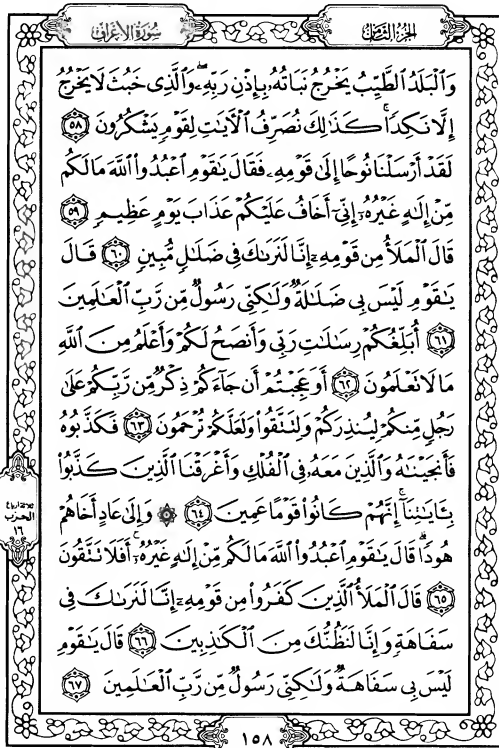 سُورَةُ الأَعْرَافِ
الجُزْءُ الثَّامِنُ
وَالْبَلَدُ الطَّيِّبُ يَخْرُجُ نَبَاتُهُۥ بِإِذْنِ رَبِّهِۦۖ وَالَّذِى خَبُثَ لَا يَخْرُجُ
إِلَّا نَكِدًاۚ كَذَٰلِكَ نُصَرِّفُ الْأَيَٰتِ لِقَوْمٍ يَشْكُرُونَ ٥٨
لَقَدْ أَرْسَلْنَا نُوحًا إِلَىٰ قَوْمِهِۦ فَقَالَ يَٰقَوْمِ اعْبُدُوا۟ اللَّهَ مَا لَكُم
مِّنْ إِلَٰهٍ غَيْرُهُۥٓ إِنِّىٓ أَخَافُ عَلَيْكُمْ عَذَابَ يَوْمٍ عَظِيمٍ ٥٩
قَالَ الْمَلَأُ مِن قَوْمِهِۦٓ إِنَّا لَنَرَىٰكَ فِى ضَلَٰلٍ مُّبِينٍ ٦٠ قَالَ
يَٰقَوْمِ لَيْسَ بِى ضَلَٰلَةٌ وَلَٰكِنِّى رَسُولٌ مِّن رَّبِّ الْعَٰلَمِينَ
٦١ أُبَلِّغُكُمْ رِسَٰلَٰتِ رَبِّى وَأَنصَحُ لَكُمْ وَأَعْلَمُ مِنَ اللَّهِ
مَا لَا تَعْلَمُونَ ٦٢ أَوَعَجِبْتُمْ أَن جَآءَكُمْ ذِكْرٌ مِّن رَّبِّكُمْ عَلَىٰ
رَجُلٍ مِّنكُمْ لِيُنذِرَكُمْ وَلِتَتَّقُوا۟ وَلَعَلَّكُمْ تُرْحَمُونَ ٦٣ فَكَذَّبُوهُ
فَأَنجَيْنَٰهُ وَالَّذِينَ مَعَهُۥ فِى الْفُلْكِ وَأَغْرَقْنَا الَّذِينَ كَذَّبُوا۟
بِـَٔايَٰتِنَآۚ إِنَّهُمْ كَانُوا۟ قَوْمًا عَمِينَ ٦٤ ۞ وَإِلَىٰ عَادٍ أَخَاهُمْ
هُودًاۗ قَالَ يَٰقَوْمِ اعْبُدُوا۟ اللَّهَ مَا لَكُم مِّنْ إِلَٰهٍ غَيْرُهُۥٓۚ أَفَلَا تَتَّقُونَ
٦٥ قَالَ الْمَلَأُ الَّذِينَ كَفَرُوا۟ مِن قَوْمِهِۦٓ إِنَّا لَنَرَىٰكَ فِى
سَفَاهَةٍ وَإِنَّا لَنَظُنُّكَ مِنَ الْكَٰذِبِينَ ٦٦ قَالَ يَٰقَوْمِ
لَيْسَ بِى سَفَاهَةٌ وَلَٰكِنِّى رَسُولٌ مِّن رَّبِّ الْعَٰلَمِينَ ٦٧
الحزب
١٦
١٥٨